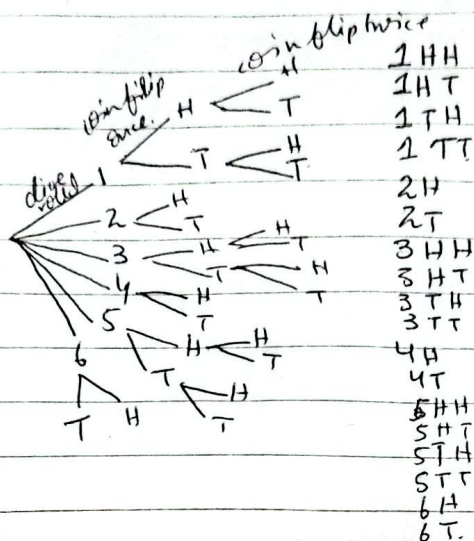 coin flip twice
coin filip
once.
dice
rolls
1
H
H
T
T
H
T
2
H
T
3
H
H
T
T
H
T
4
H
T
5
H
H
T
T
H
T
6
T
H
1 HH
1H T
1 TH
1 TT
2H
2T
3 HH
3 HT
3 TH
3 TT
4H
4T
5HH
5HT
5TH
5TT
6H
6T.